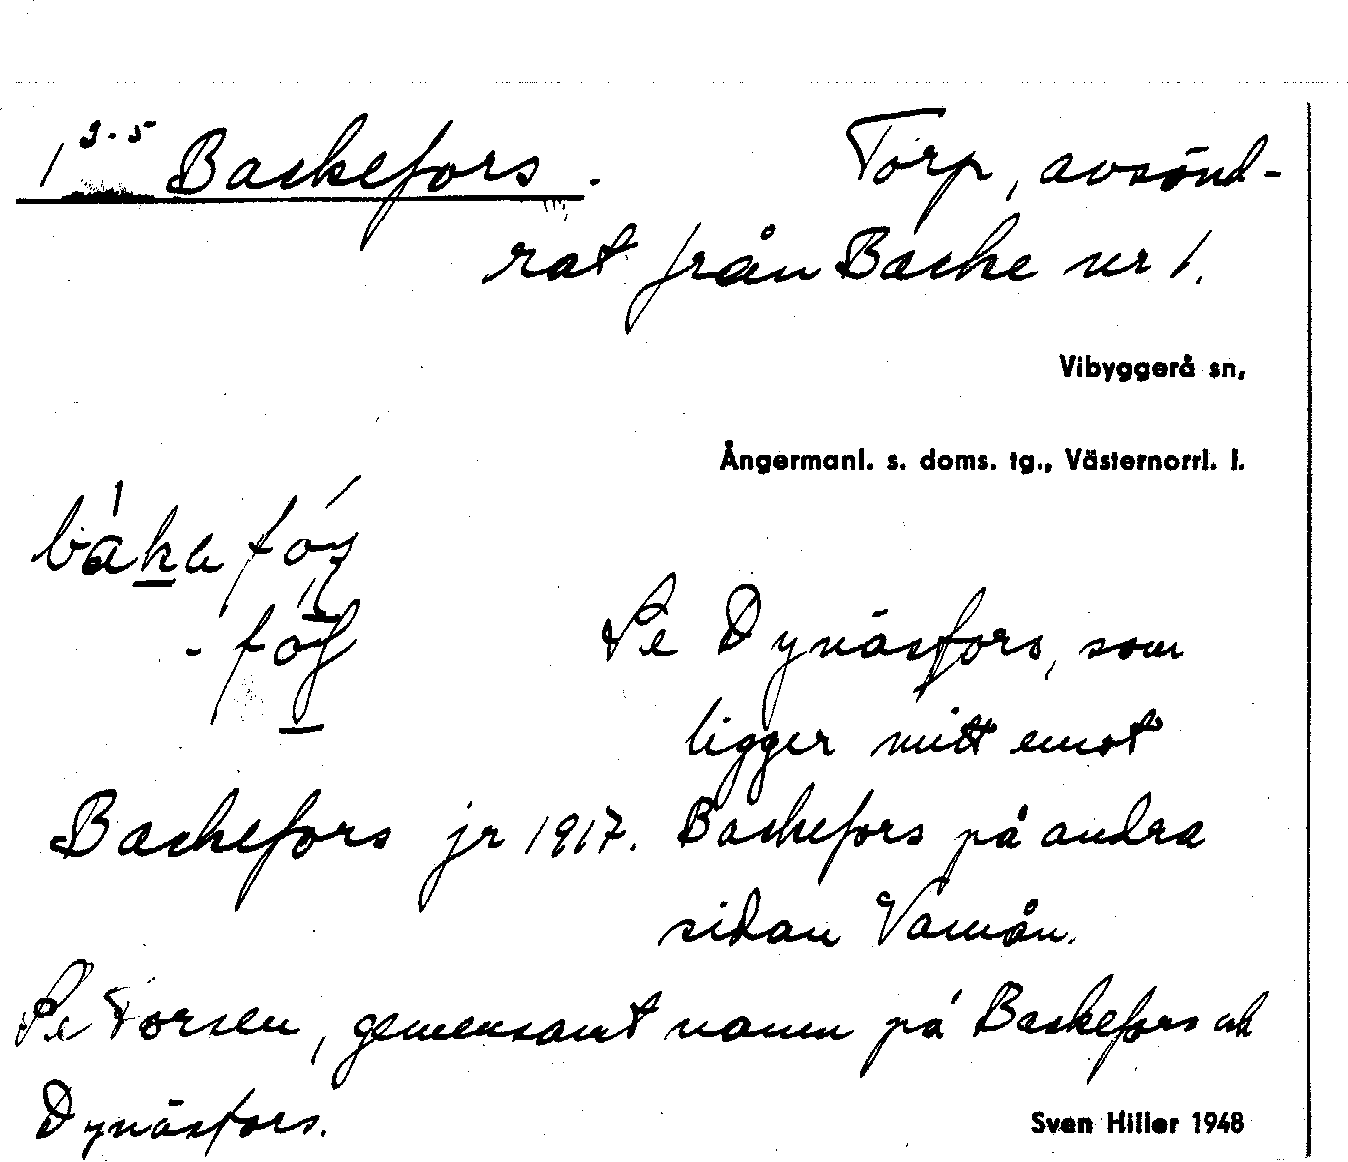 1 3-5 Backefors. Torp, avsönd-
rat från Backe nr 1.
Vibyggerå sn,
Ångermanl. s. doms. tg., Västernorrl. l.
Se Dynäsfors, som
ligger mitt emot
Backefors jr 1917. Backefors på andra
sidan
Se Forsen, gemensamt namn på Backefors och
Dynäsfors.
Sven Hiller 1948